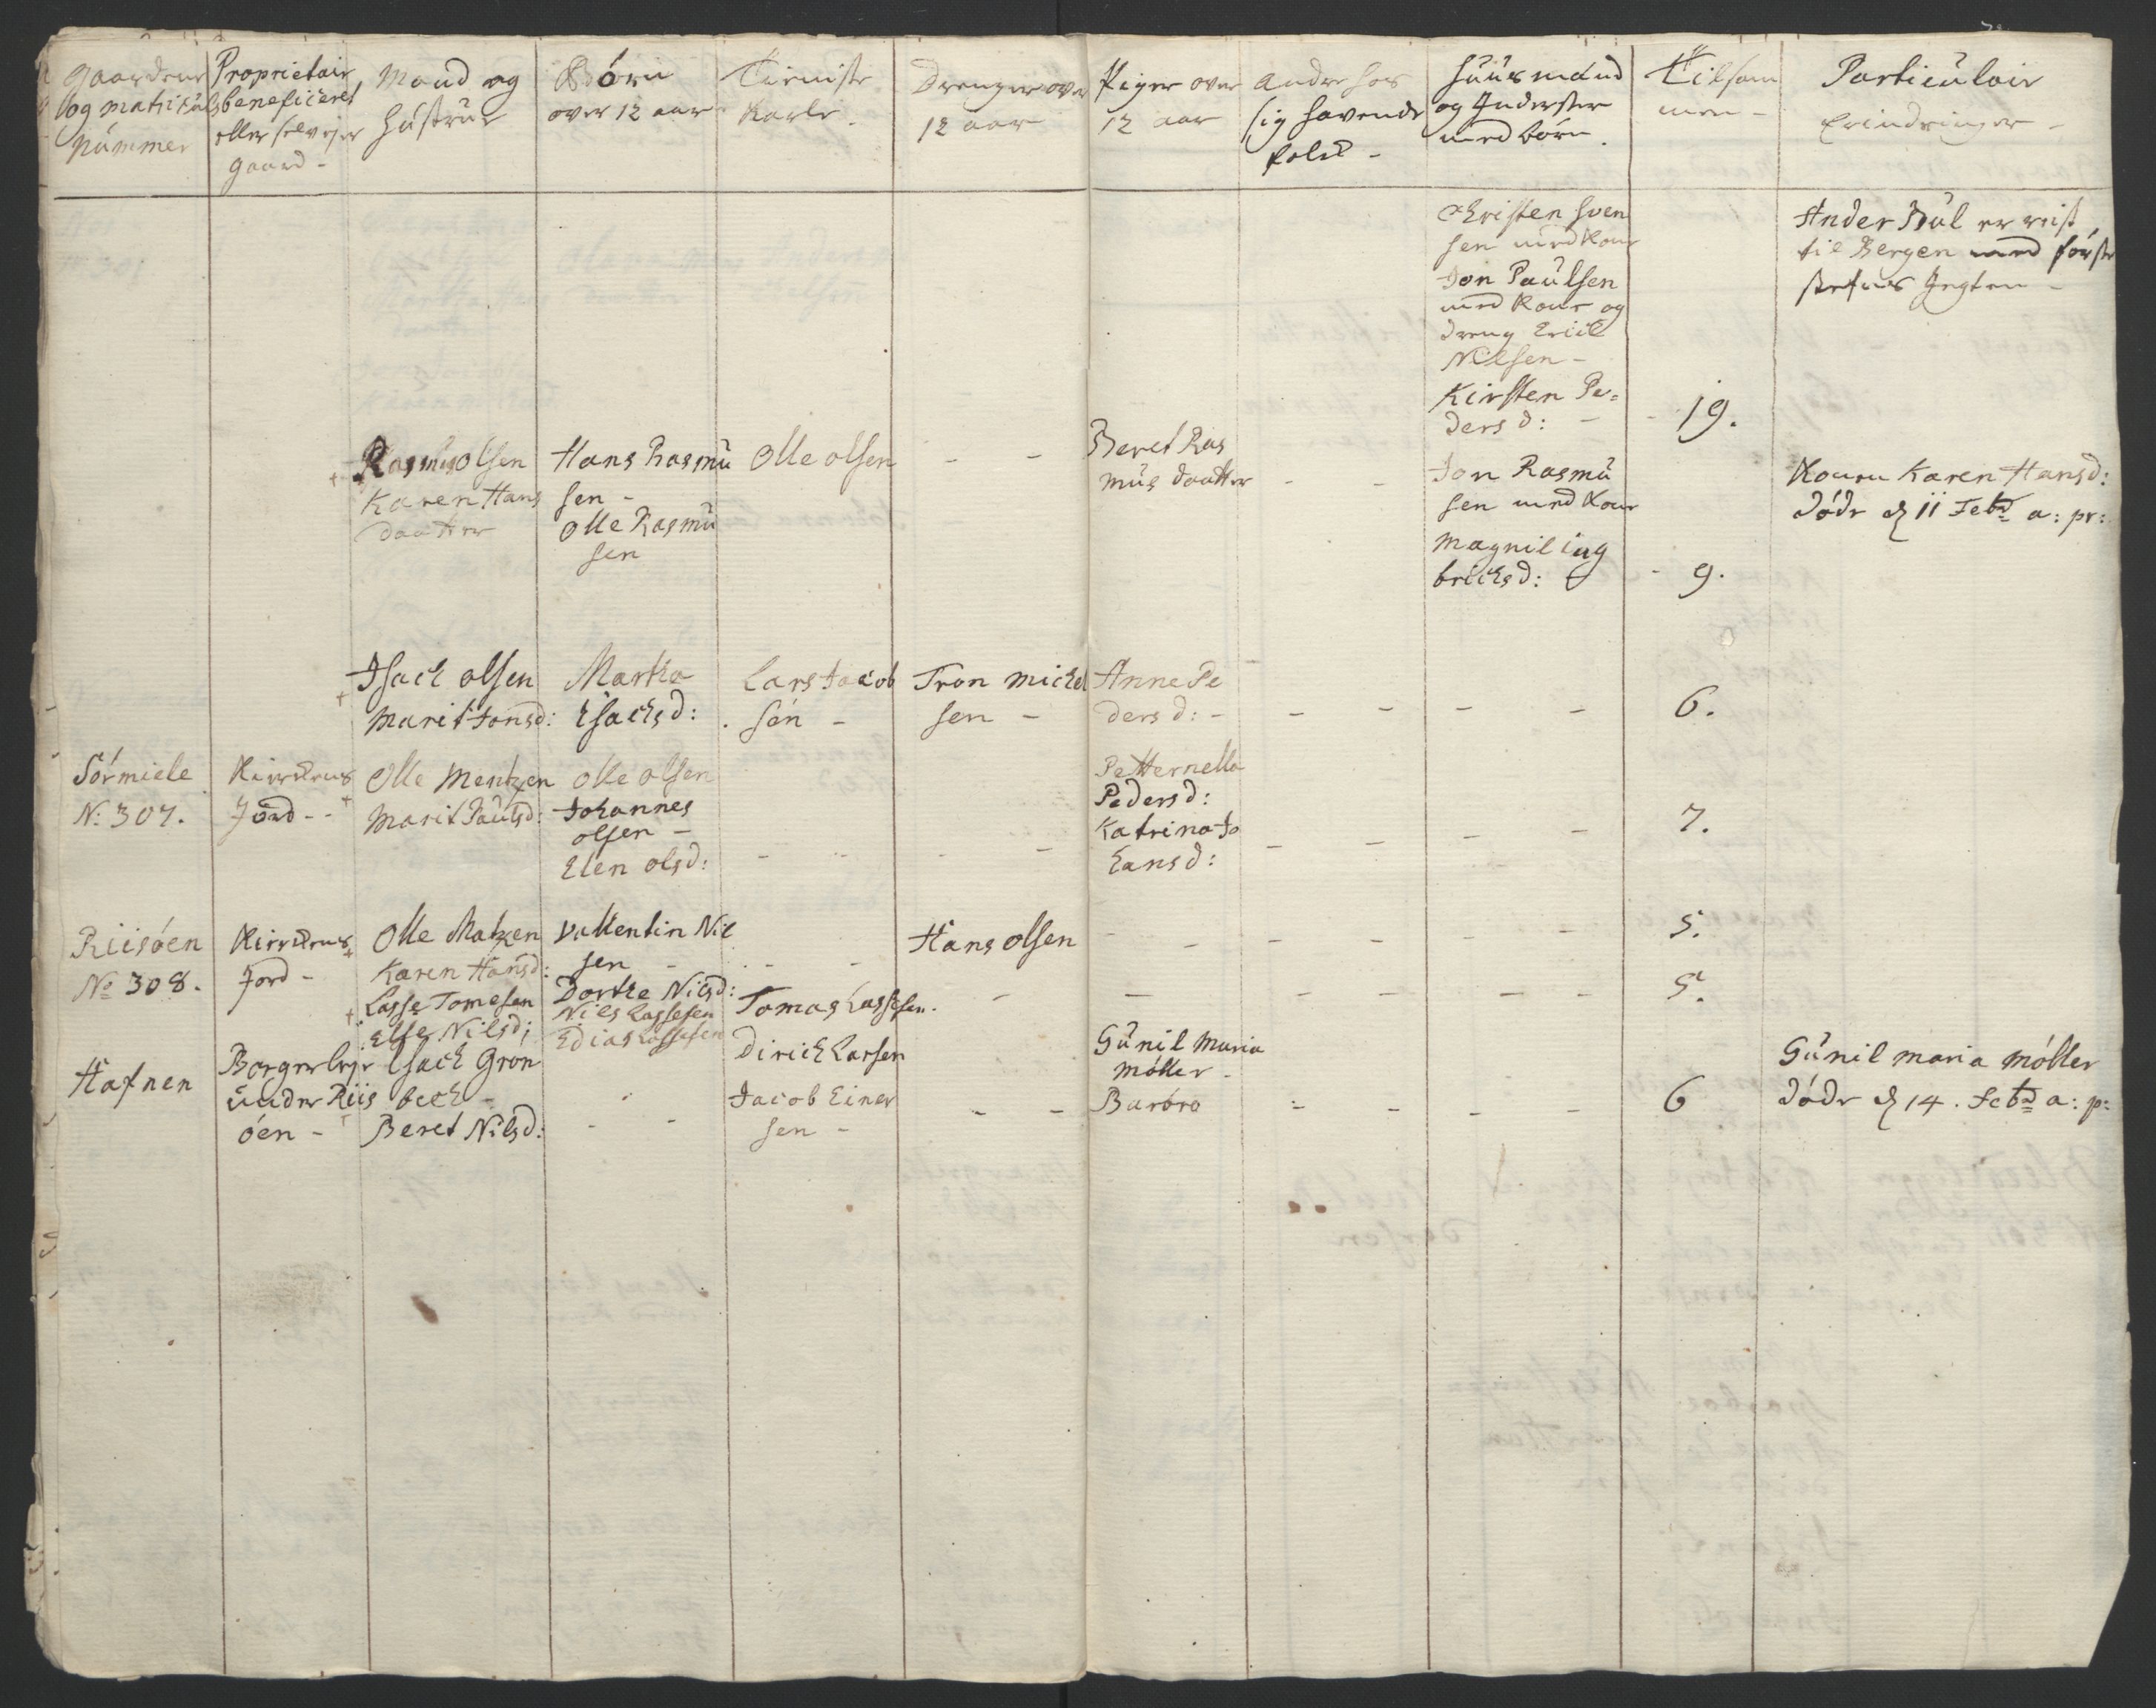 Gaardens
og matricul
nummer
Proprietair
beneficeret
eller selvejer
gaard -
Mand og
Hustrue
Börn
over 12 aar
Tieniste
Karle -
Drenger over
12 aar
Piger over
12 aar
Andre hos
sig havende
folck -
Huusmænd
og Inderster
med börn.
Tilsam
men -
Particulair
Erindringer -
Christen Sven
sen med Kone
Jon Paulsen
med Kone og
dreng Erich
Nilsen -
Kirsten Pe=
dersd: -
19.
Ander Bul er reist
til Bergen med förste
stefnes Jegten -
Rasmus olsen
Karen Hans
daatter
Hans Rasmu
sen -
Olle Rasmu
sen
Olle olsen
- -
Beret Ras
mus daatter
- -
Jon Rasmu
sen med Kone
Magnil ing
brichsd:
- 9.
Konen Karen Hansd:
döde d 11 Febr a: pr:
Isach olsen
Marit Jonsd:
Martha
Isachsd:
Lars Jacob
sen -
Tron michel
sen -
Anne Pe
dersd: -
- - - -
6.
Sörmiele
N: 307.
Kirckens
Jord - -
Olle Mentzen
Marit Paulsd:
Olle olsen
Johannes
olsen -
Elen olsd:
- - - -
Petternella
Pedersd:
Katrina Jo
hansd:
- - - -
7.
Riisöen
No 308.
Kirckens
Jord -
Olle Matzen
Karen Hansd:
Vallentin Nil
sen -
Dorthe Nilsd:
- -
Hans olsen
- - - - - -
5.
Lasse Tomesen
Else Nilsd:
Nils Lassesen
Edias Lassesen
Tomas Lassesen.
- - - - - -
5.
Hafnen
Borgerleje
under Riis
öen -
Isach Grön
bech -
Beret Nilsd:
- -
Dirich Larsen
Jacob Einer
sen -
- -
Gunil Maria
Möller -
Barbra
- - - -
6
Gunil maria möller
döde d 14. Febr a: p: